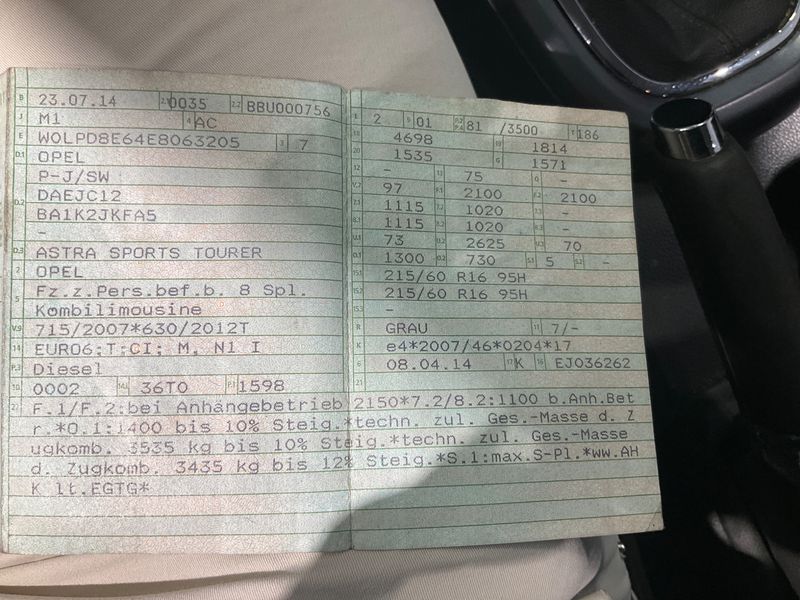 B 23.07.14 2.1 0035 2.2 BBU000756
J M1 4 AC
E W0LPD8E64E8063205 3 7
D.1 OPEL
P-J/SW
D.2 DAEJC12
BA1K2JKFA5
-
D.3 ASTRA SPORTS TOURER
2 OPEL
5 Fz.z.Pers.bef.b. 8 Spl.
Kombilimousine
V.9 715/2007*630/2012T
14 EURO6;T;CI; M, N1 I
P.3 Diesel
10 0002 14.1 36T0 P.1 1598
L 2 9 01 P.2/P.4 81 /3500 T 186
18 4698 19 1814
20 1535 G 1571
12 - 13 75 Q -
V.7 97 F.1 2100 F.2 2100
7.1 1115 7.2 1020 7.3 -
8.1 1115 8.2 1020 8.3 -
U.1 73 U.2 2625 U.3 70
O.1 1300 O.2 730 S.1 5 S.2 -
15.1 215/60 R16 95H
15.2 215/60 R16 95H
15.3 -
R GRAU 11 7/-
K e4*2007/46*0204*17
6 08.04.14 17 K 16 EJ036262
21
22 F.1/F.2:bei Anhängebetrieb 2150*7.2/8.2:1100 b.Anh.Bet
r.*O.1:1400 bis 10% Steig.*techn. zul. Ges.-Masse d. Z
ugkomb. 3535 kg bis 10% Steig.*techn. zul. Ges.-Masse
d. Zugkomb. 3435 kg bis 12% Steig.*S.1:max.S-Pl.*ww.AH
K lt.EGTG*